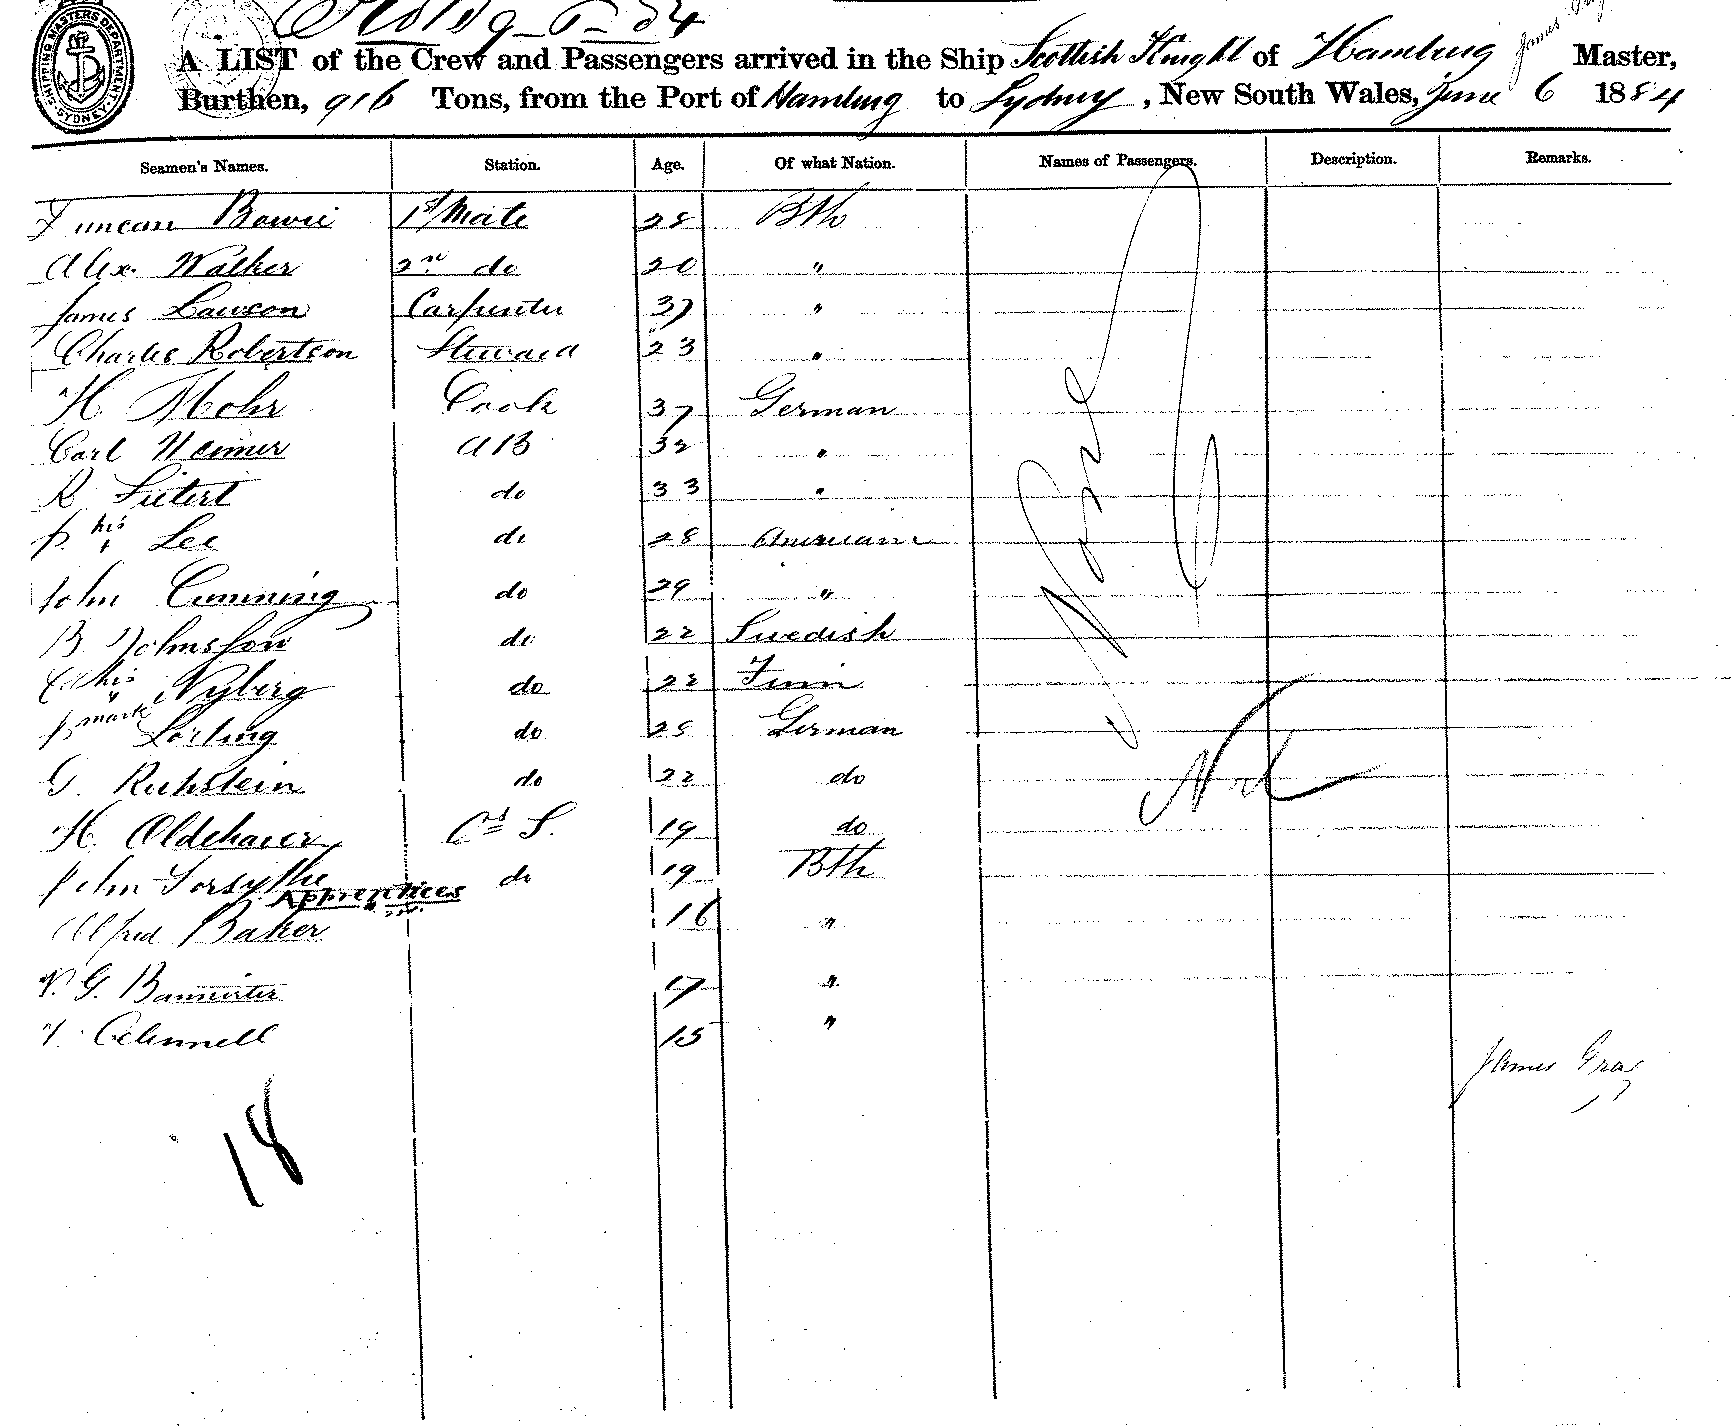 SHIPPING MASTERS DEPARTMENT SYDNEY
A LIST of the Crew and Passengers arrived in the Ship Scottish Knight of Hamburg James Master,
Burthen, 916 Tons, from the Port of Hamburg to Sydney, New South Wales, June 6 1884
Seamen's Names. Station. Age. Of what Nation. Names of Passengers. Description. Remarks.
Duncan Bowie 1st Mate 28 Bth
Alex. Walker 2nd do 20 "
James Lawson Carpenter 37 "
Charles Robertson Steward 23 "
H. Mohr Cook 37 German
Carl Weimer AB 32 "
R do 33 "
his Lee do 28 American
John Cumming do 29 "
B Johnston do 22 Swedish
his Nyberg do 22 Finn
mark do 25 German
G. Ruhstein do 22 do
H. do 19 do
John Forsythe do 19 Bth
Apprentices
Alfred Baker 16 "
G. Bannister 17 "
15 "
None
James Gray
18